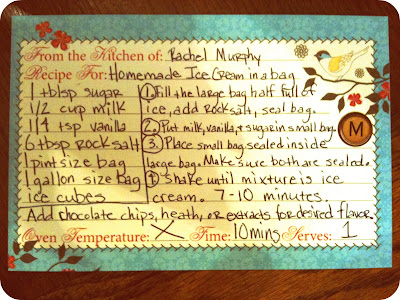 From the Kitchen of: Rachel Murphy
Recipe For: Homemade Ice Cream in a bag
1 tblsp sugar
1/2 cup milk
1/4 tsp vanilla
6 tbsp rock salt
1 pint size bag
1 gallon size bag
ice cubes
1. Fill the large bag half full of
ice, add rock salt, seal bag.
2. Put milk, vanilla, + sugar in small bag.
3. Place small bag sealed inside
large bag. Make sure both are sealed.
4. Shake until mixture is ice
cream. 7-10 minutes.
Add chocolate chips, heath, or extracts for desired flavor.
Oven Temperature: X Time: 10mins Serves: 1
M